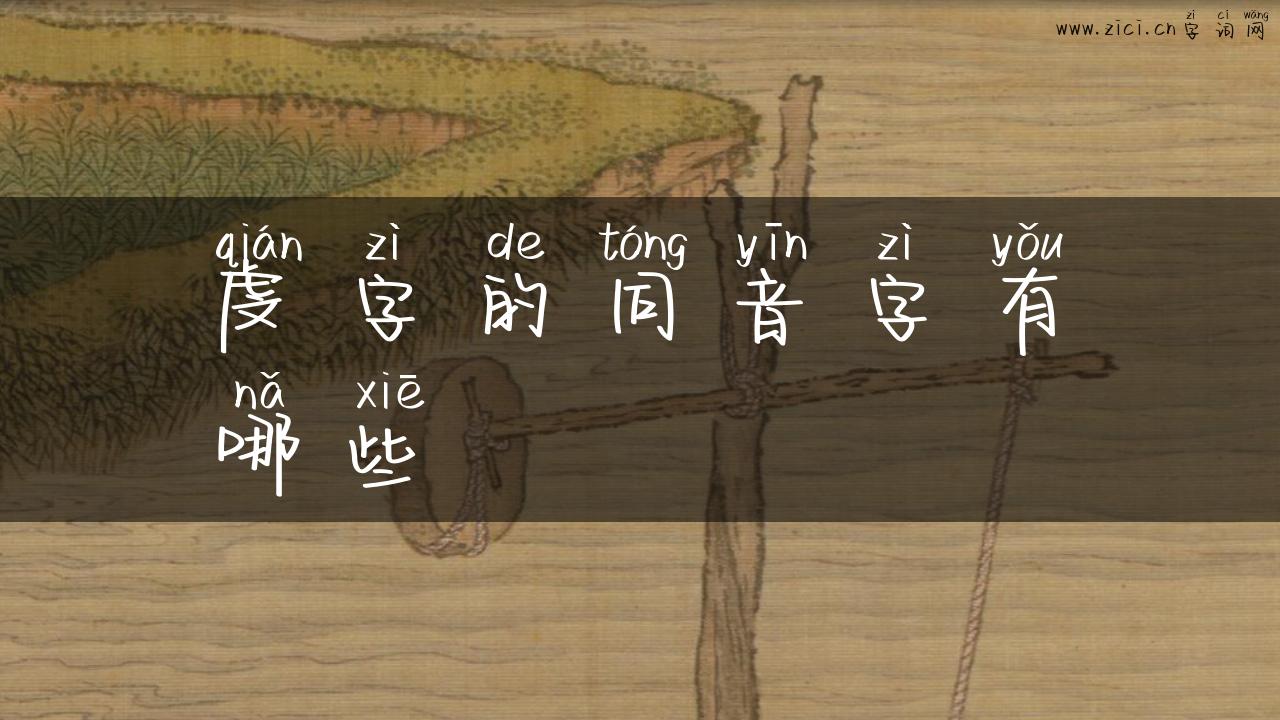 zì cí wǎng
www.zici.cn 字词网
qián zì de tóng yīn zì yǒu
虔字的同音字有
nǎ xiē
哪些